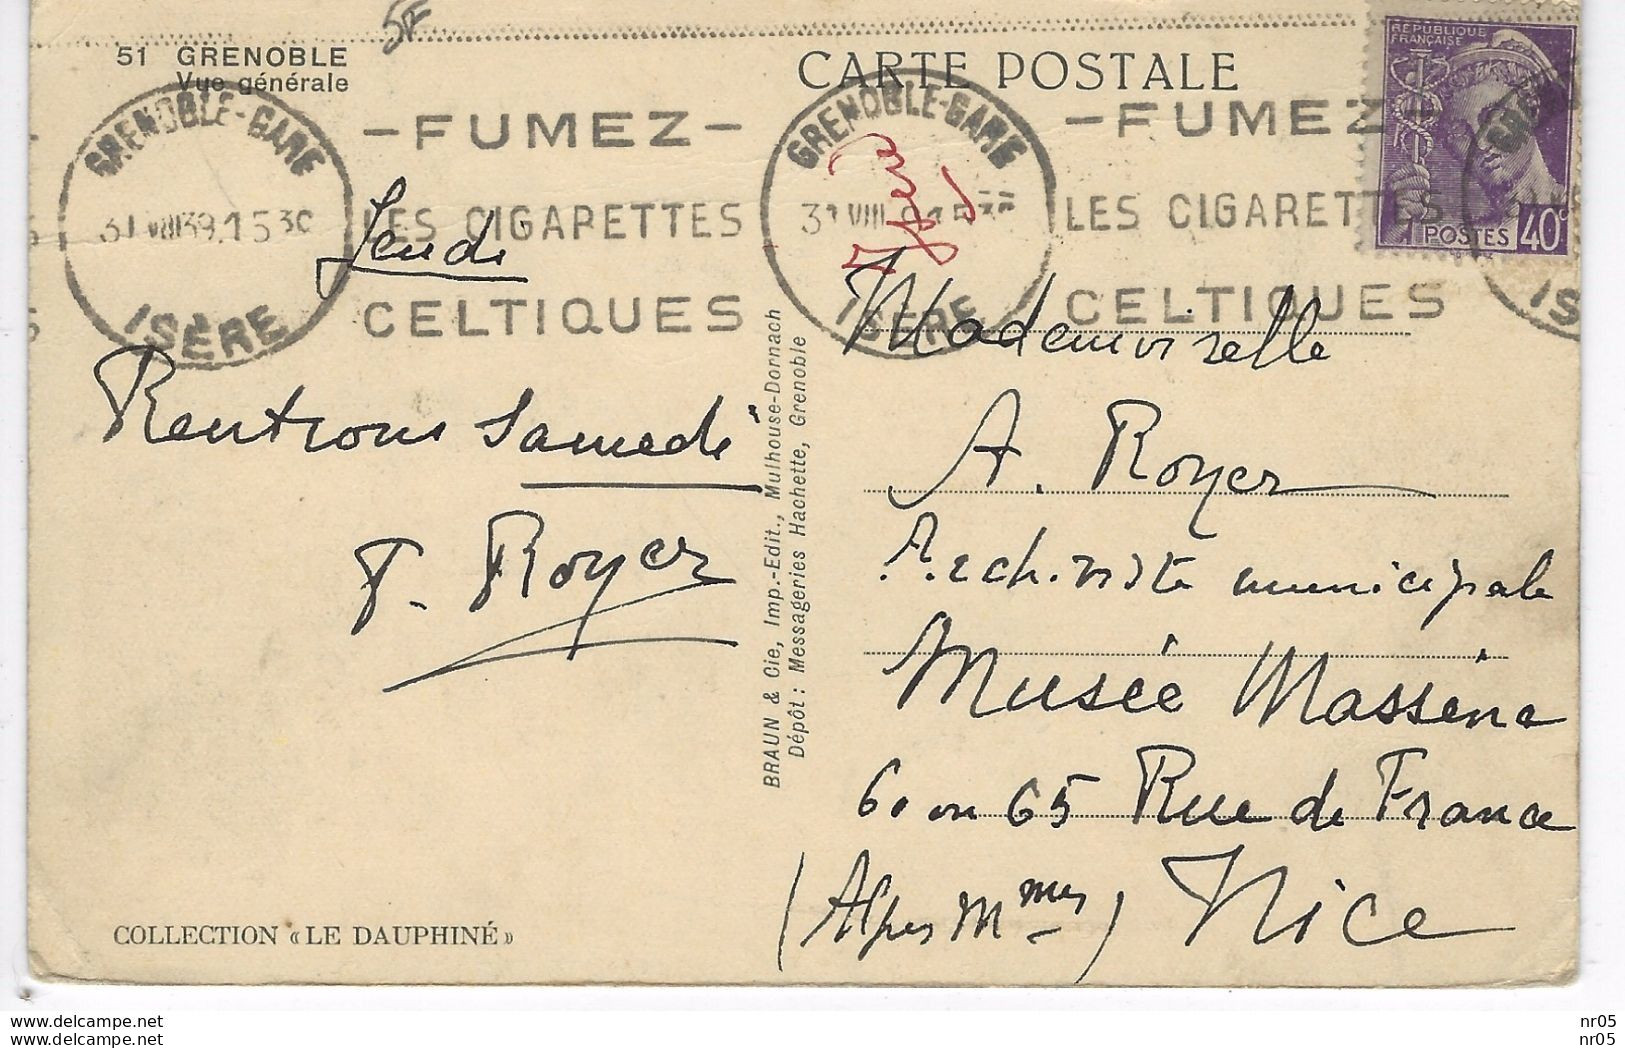 5F
51 GRENOBLE
Vue générale
CARTE POSTALE
RÉPUBLIQUE
FRANÇAISE
POSTES 40c
GRENOBLE-GARE
31 VIII 39. 15 30
ISÈRE
– FUMEZ –
LES CIGARETTES
CELTIQUES
GRENOBLE-GARE
ISÈRE
– FUMEZ
LES CIGARETTES
CELTIQUES
Jeudi
Rentrons Samedi
P. Royer
COLLECTION « LE DAUPHINÉ »
BRAUN & Cie, Imp.-Edit., Mulhouse-Dornach
Dépôt : Messageries Hachette, Grenoble
Mademoiselle
A. Royer
Archiviste municipale
Musée Masséna
60 ou 65 Rue de France
(Alpes Mmes) Nice
www.delcampe.net
www.delcampe.net
nr05
nr05